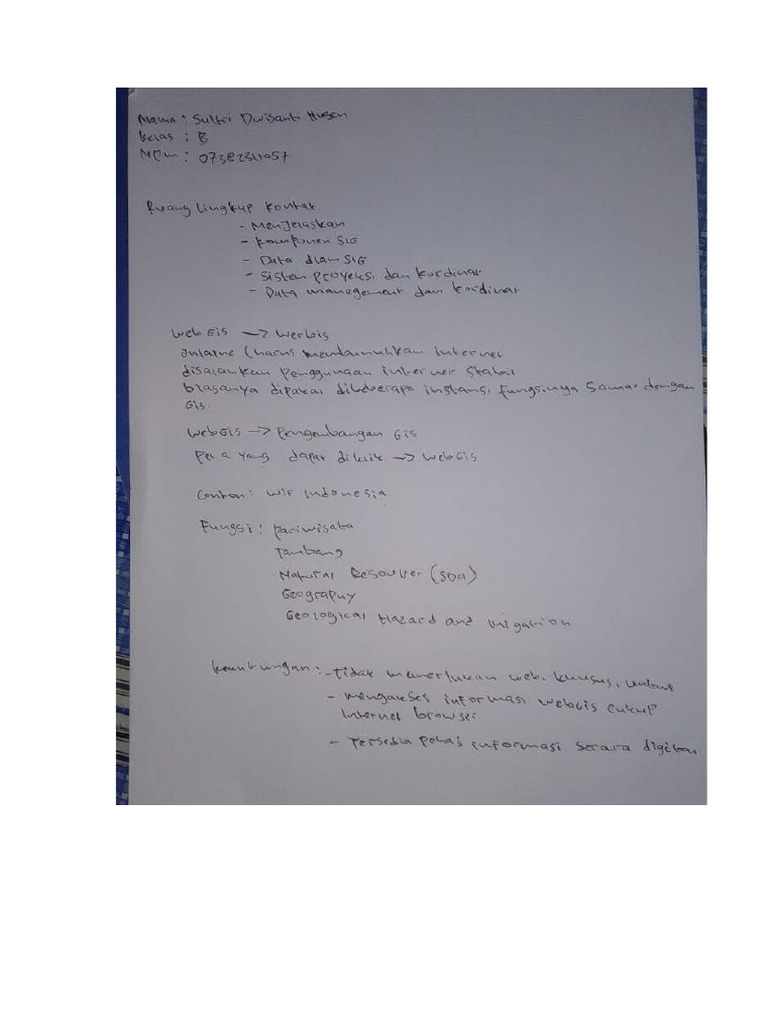 Nama : Sultri Dwisanti Husen
Kelas : B
NPM : 07382311057
Ruang Lingkup kontak
- Menjelaskan
- Komponen SIG
- Data dlam SIG
- Sistem Proyeksi dan kordinat
- Data management dan kordinat
Web GIS → Werbis
online (harus membutuhkan internet
disarankan Penggunaan internet stabil
biasanya dipakai dibeberapa instansi fungsinya sama dengan
GIS.
WebGIS → Pengembangan GIS
Peta yang dapat diklik → WebGIS
Contoh : WIF Indonesia
Fungsi : pariwisata
Tambang
Natural Resource (SDA)
Geography
Geological Hazard and Migation
keuntungan : - Tidak memerlukan web. khusus, untuk
- mengakses informasi WebGIS cukup
Internet browser
- Tersedia informasi secara digital